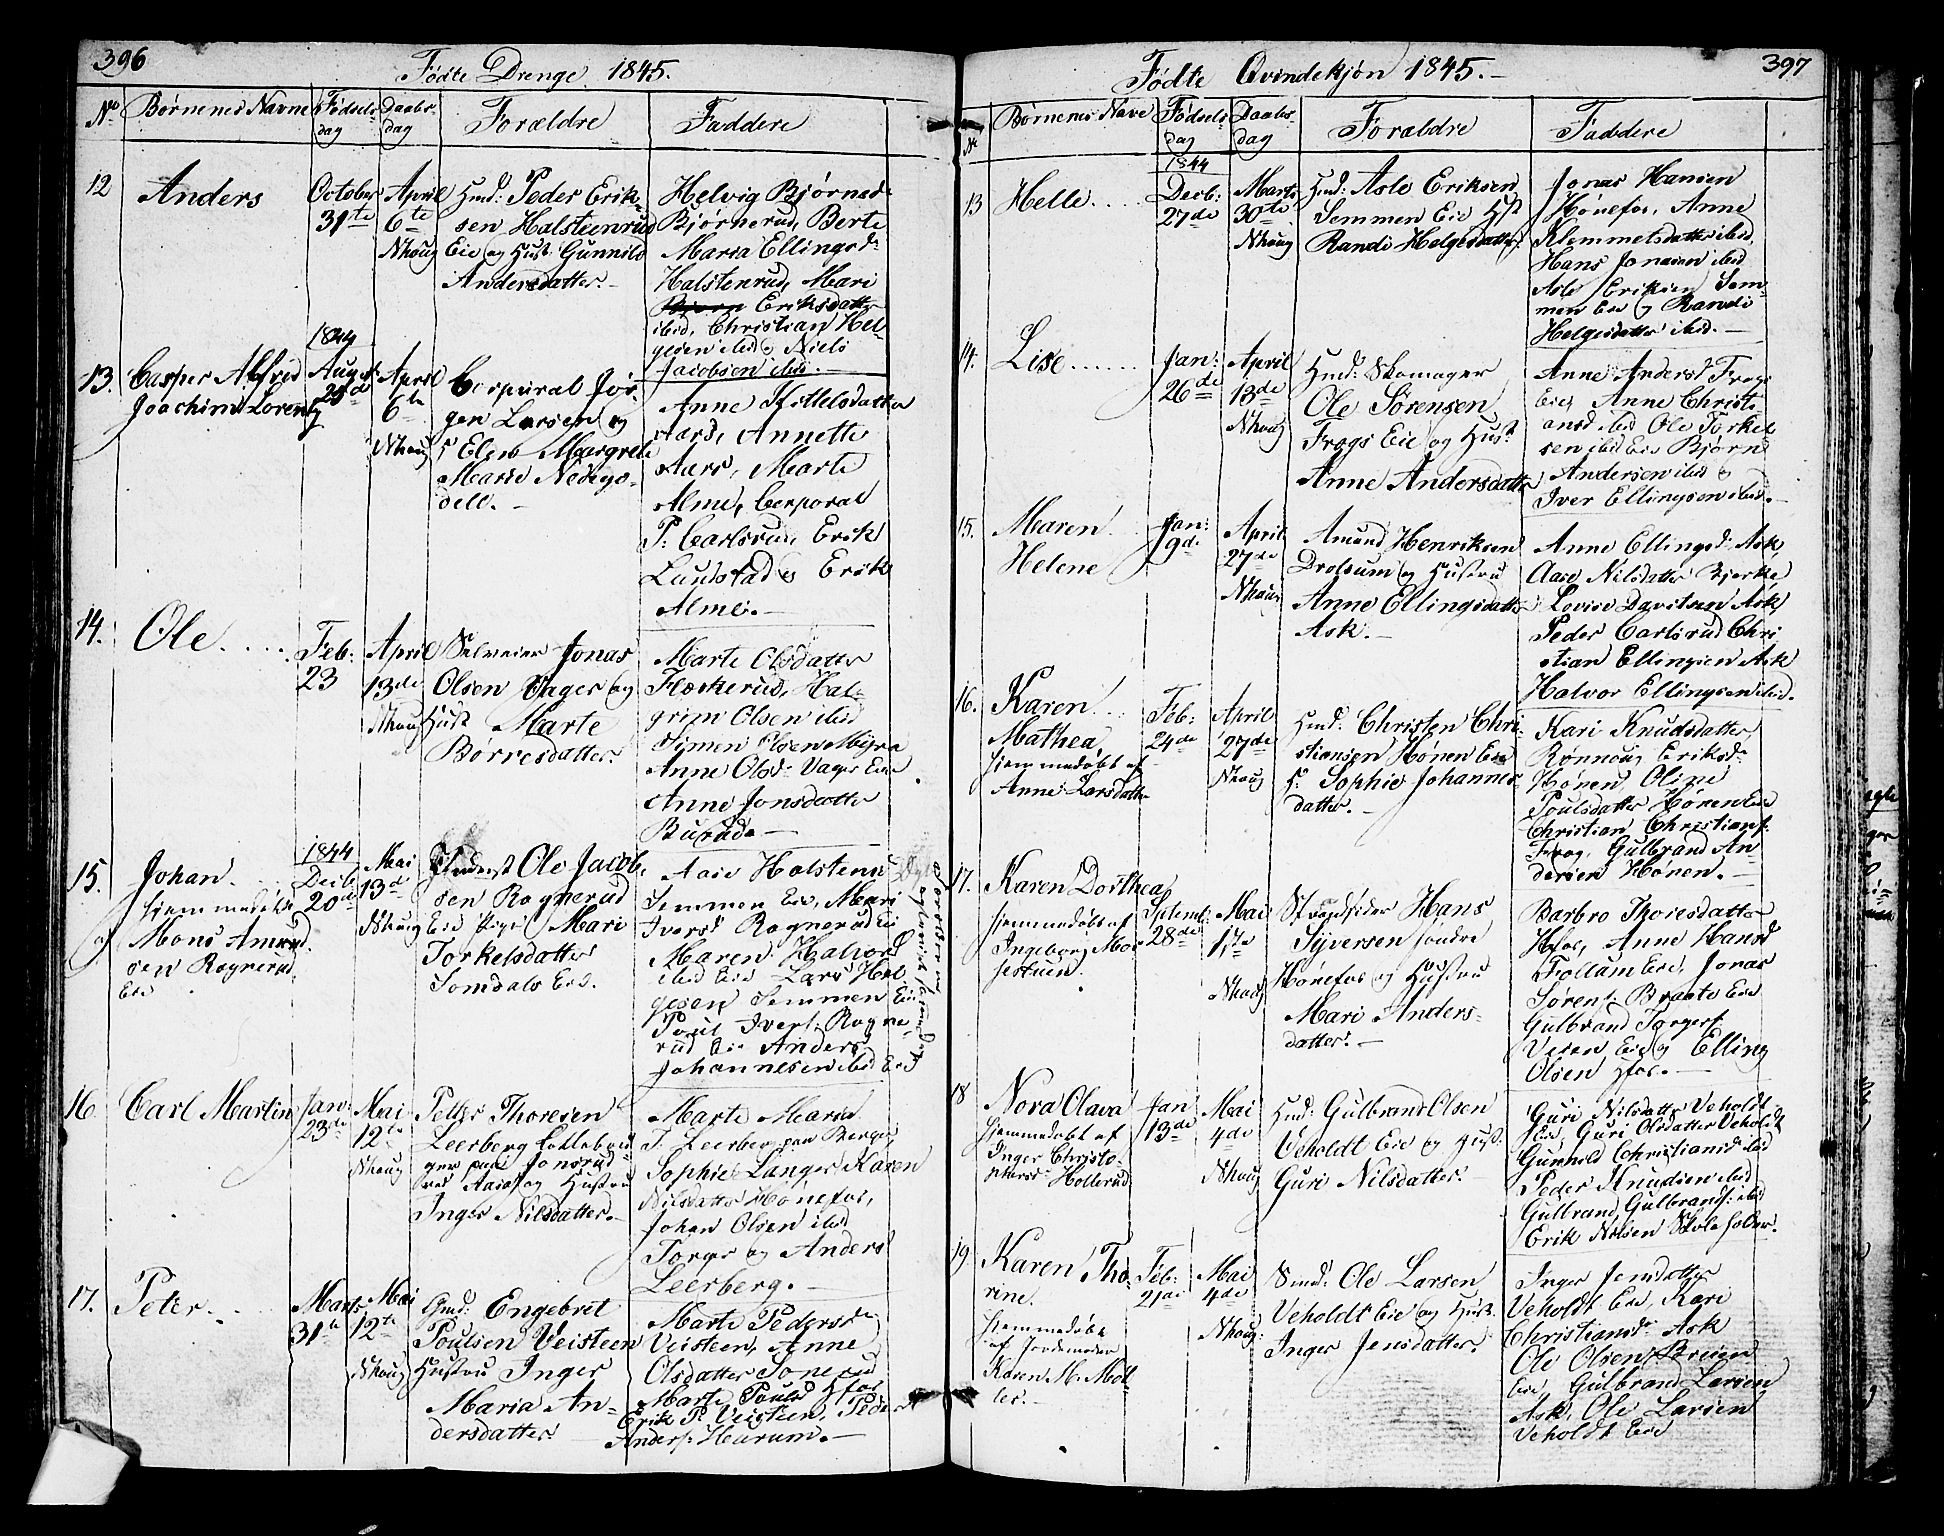 396
Födte Drenge 1845.
No
Börnenes Navne
Födsels
dag
Daabs
dag
Forældre
Faddere
12
Anders
October
31te
April
6te
Nhoug
Hmd: Peder Erik-
sen Halsteenrud
Eie og Hust Gunnild
Andersdatter.
Helvig Björnsd
Björnerud, Berte
Maria Ellingsd
Halstenrud, Mari
Eriksdatter
ibid, Christian Hel-
gesen ibid og Niels
Jacobsen ibid.
13.
Casper Alfred
Joachim Lorentz
1844
August
April
6te
Nhoug
Corporal Jör-
gen Larsen og
H Elen Margrete
Marie Nedego-
dell.
Anne Kittelsdatter
Aars, Annette
Aars, Marte
Alme, Corporal
P: Carlsrud, Erik
Lundstad og Erik
Alme.
14.
Ole.
Feb:
23
April
13de
Nhoug
Selveier Jonas
Olsen Vager og
Hust Marte
Börresdatter.
Marte Olsdatter
Flaskerud, Hal-
grim Olsen ibid
Simen Olsen Myra
Anne Olsd: Vager Eie
Anne Jonsdatter
Burud.
15.
Johan.
hjemmedöbt
af
Mons Amund
sen Rognerud
Eie
1844
Decb
20de
Mai
13de
Nhoug
Ole Jacob
sen Rognerud
Eie Pige Mari
Torkelsdatter
Somdals Eie.
Aase Halstensd
Semmen Eie, Mari
Iversd Rognerud Ei
Maren Halvors
ibid Eie Lars Hel
gesen Semmen Eie
Poul Ivers. Rogne
rud Eie Anders
Johannesen ibid Eie
16.
Carl Martin
Jan:
23de
Mai
12te
Nhoug
Petter Thoresen
Leerberg
Jonsrud
og Hustru
Inger Nilsdatter.
Marte Maria
T. Leerberg paa Berger,
Sophie Langer Karen
Nilsdatter Hönefos,
Johan Olsen ibid
Torger og Anders
Leerberg.
17.
Peter
Marts
31te
Mai
12te
Nhoug
Gmd: Engebret
Poulsen Veisteen
Hustru Inger
Maria An-
dersdatter
Marte Pedersd
Veisteen, Anne
Olsdatter Sonerud
Marte Poulsd Hfos
Erik P: Veisteen, Peder
Anders: Haerum.
397
Födte Qvindekjön 1845.
No
Börnenes Navne
Födsels
dag
Daabs
dag
Forældre
Faddere
13
Helle
1844
Decb:
27de
Marts
30te
Nhoug
Hmd: Asle Eriksen
Semmen Eie Hst
Randi Helgesdatter
Jonas Hansen
Hönefos, Anne
Klemmetsdatter ibid,
Hans Jonasen ibid
Asle Eriksen Sem-
men Eie og Randi
Helgesdatter ibid.
14.
Lise
Jan:
26de
April
13de
Nhoug
Hmd: Skomager
Ole Sörensen
Frogs Eie og Hust
Anne Andersdatter
Anne Andersd Frogs
Eie, Anne Christi
ansd ibid Ole Torkel
sen ibid Eie Björn
Andersen ibid og
Iver Ellingsen ibid.
15.
Maren
Helene
Jan:
9de
April
27de
Nhoug
Amund Henriksen
Drolsum og Hustru
Anne Ellingsdatter
Ask.
Anne Ellingsd: Ask,
Aase Nilsdatter Bjerke
Lovise Davitsen Ask
Peder Carlsrud Chri
stian Ellingsen Ask
Halvor Ellingsen ibid.
16.
Karen
Mathea,
hjemmedöbt af
Anne Larsdatter
Feb:
24de
April
27de
Nhoug
Hmd: Christen Chri-
stiansen Hönen Eie
H. Sophie Johannes-
datter.
Kari Knudsdatter
Rönnoug Eriksd
Hönen, Oline
Poulsdatter Hönen Eie
Christian Christians.
Frog, Gulbrand An
dersen Hönen.
17.
Karen Dorthea
hjemmedöbt af
Ingeborg Mor
Septemb:
28de
Mai
1ste
Nhoug
Strandsider Hans
Syversen söndre
Hönefos og Hustru
Mari Anders-
datter.
Barbro Thoresdatter
Hfos, Anne Hansd
Follum Eie, Jonas
Sörens. Braate Eie
Gulbrand Torgers.
Vesen Eie og Elling
Olsen Hfos.
18
Nora Olava
hjemmedöbt af
Inger Christo-
phersd: Hollerud
Jan
13de
Mai
4de
Nhoug
Hmd: Gulbrand Olsen
Veholdt Eie og Hust
Guri Nilsdatter.
Guri Nilsdatter Veholdt
Eie, Guri Olsdatter Veholdt
Gunnild Christiansd ibid
Peder Knudsen ibid
Gulbrand Gulbrands. ibid
Erik Nilsen Skoleholder.
19.
Karen Tho-
rine.
hjemmedöbt
af Jordemoder
Karen M. Möl-
ler.
Feb:
21de
Mai
4de
Nhoug.
Smd: Ole Larsen
Veholdt Eie og Hust
Inger Jensdatter
Inger Jensdatter
Veholdt Eie, Kari
Christiansd Ask
Ole Olsen Breien
Eie, Gulbrand Larsen
Ask, Ole Larsen
Veholdt Eie